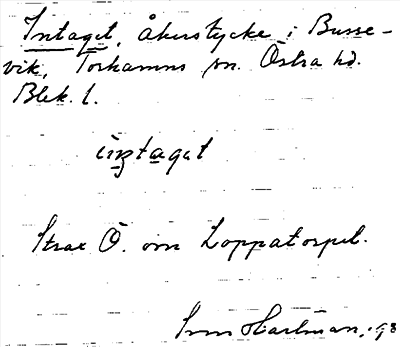 Intaget, åkerstycke i Busse-
vik, Torhamns sn. Östra hd.
Blek. l.
intaget
Strax Ö. om Loppatorpet.
Sven Hartman, 193